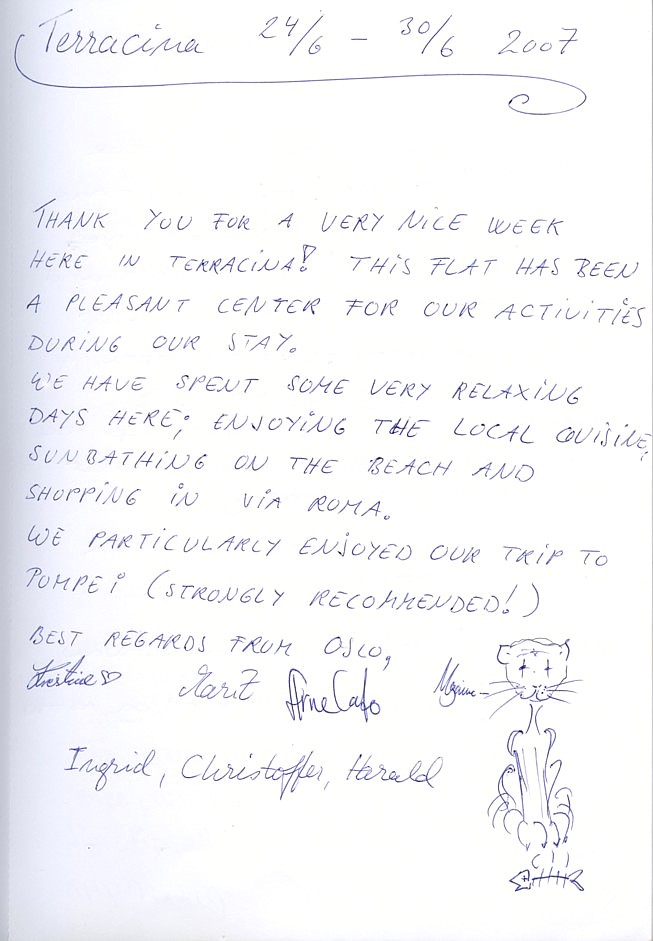 Terracina 24/6 – 30/6 2007
THANK YOU FOR A VERY NICE WEEK
HERE IN TERRACINA! THIS FLAT HAS BEEN
A PLEASANT CENTER FOR OUR ACTIVITIES
DURING OUR STAY.
WE HAVE SPENT SOME VERY RELAXING
DAYS HERE; ENJOYING THE LOCAL QUISINE,
SUNBATHING ON THE BEACH AND
SHOPPING IN VIA ROMA.
WE PARTICULARLY ENJOYED OUR TRIP TO
POMPEI (STRONGLY RECOMMENDED!)
BEST REGARDS FROM OSLO,
Kristine Marit
Ingrid, Christoffer, Harald